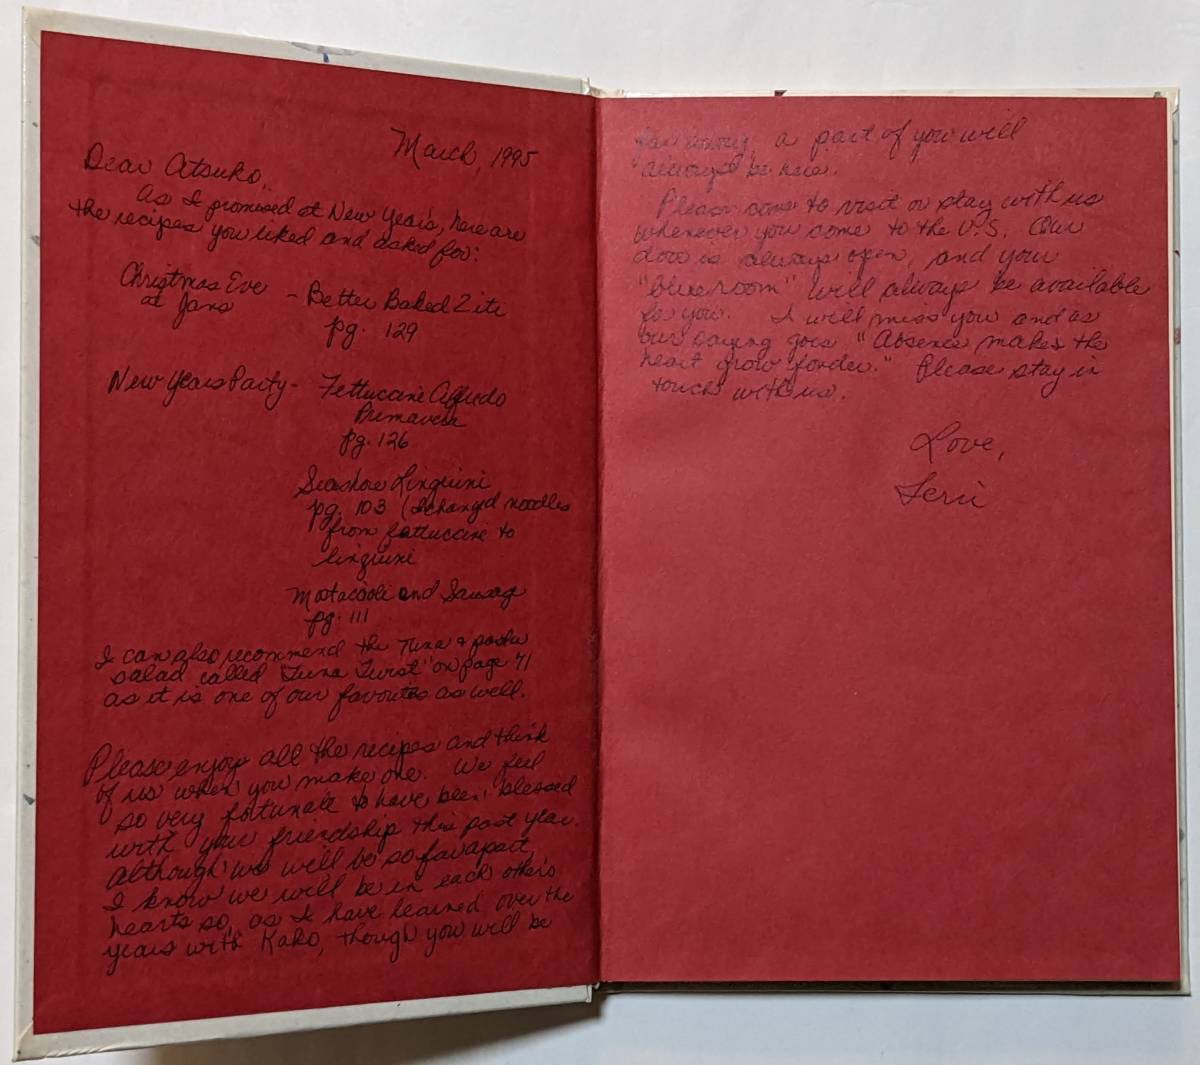 March, 1995
Dear Atsuko,
As I promised at New Year's, here are
the recipes you liked and asked for:
Christmas Eve
at Jans
- Better Baked Ziti
pg. 129
New Years Party - Fettuccine Alfredo
Primavera
pg. 126
Seashore Linguini
pg. 103 (I changed noodles
from fettuccine to
linguini
Mostaccioli and Sausage
pg. 111
I can also recommend the Tuna & pasta
salad called "Tuna Twist" on page 71
as it is one of our favourites as well.
Please enjoy all the recipes and think
of us when you make one. We feel
so very fortunate to have been blessed
with your friendship this past year.
Although we will be so far apart,
I know we will be in each others
hearts so, as I have learned over the
years with Kako, though you will be
far away, a part of you will
always be here.
Please come to visit or stay with us
whenever you come to the U.S. Our
door is always open, and your
"blue room" will always be available
for you. I will miss you and as
our saying goes "Absence makes the
heart grow fonder." Please stay in
touch with us.
Love,
Terri